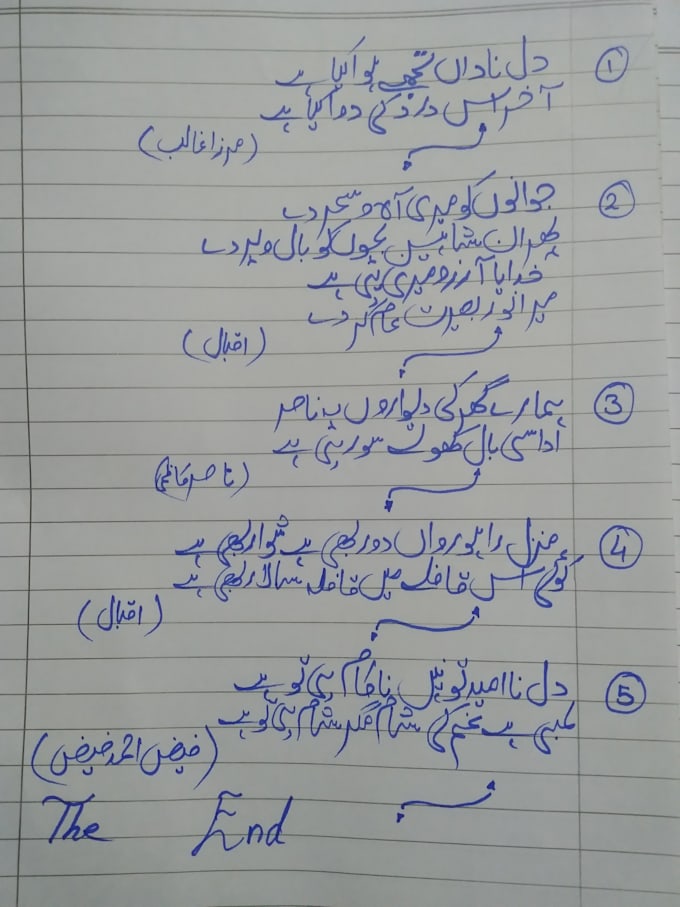 ① دل ناداں تجھے ہوا کیا ہے
آخر اس درد کی دوا کیا ہے
(مرزا غالب)
② جوانوں کو میری آہ و سحر دے
پھر ان شاہین بچوں کو بال و پر دے
خدایا آرزو میری یہی ہے
میرا نور بصیرت عام کر دے
(اقبال)
③ ہمارے گھر کی دیواروں پہ ناصر
اداسی بال کھولے سو رہی ہے
(ناصر کاظمی)
④ منزل راہرواں دور بھی ہے دشوار بھی ہے
کوئی اس قافلے میں قافلہ سالار بھی ہے
(اقبال)
⑤ دل ناامید تو نہیں ناکام ہی تو ہے
لمبی ہے غم کی شام مگر شام ہی تو ہے
(فیض احمد فیض)
The End